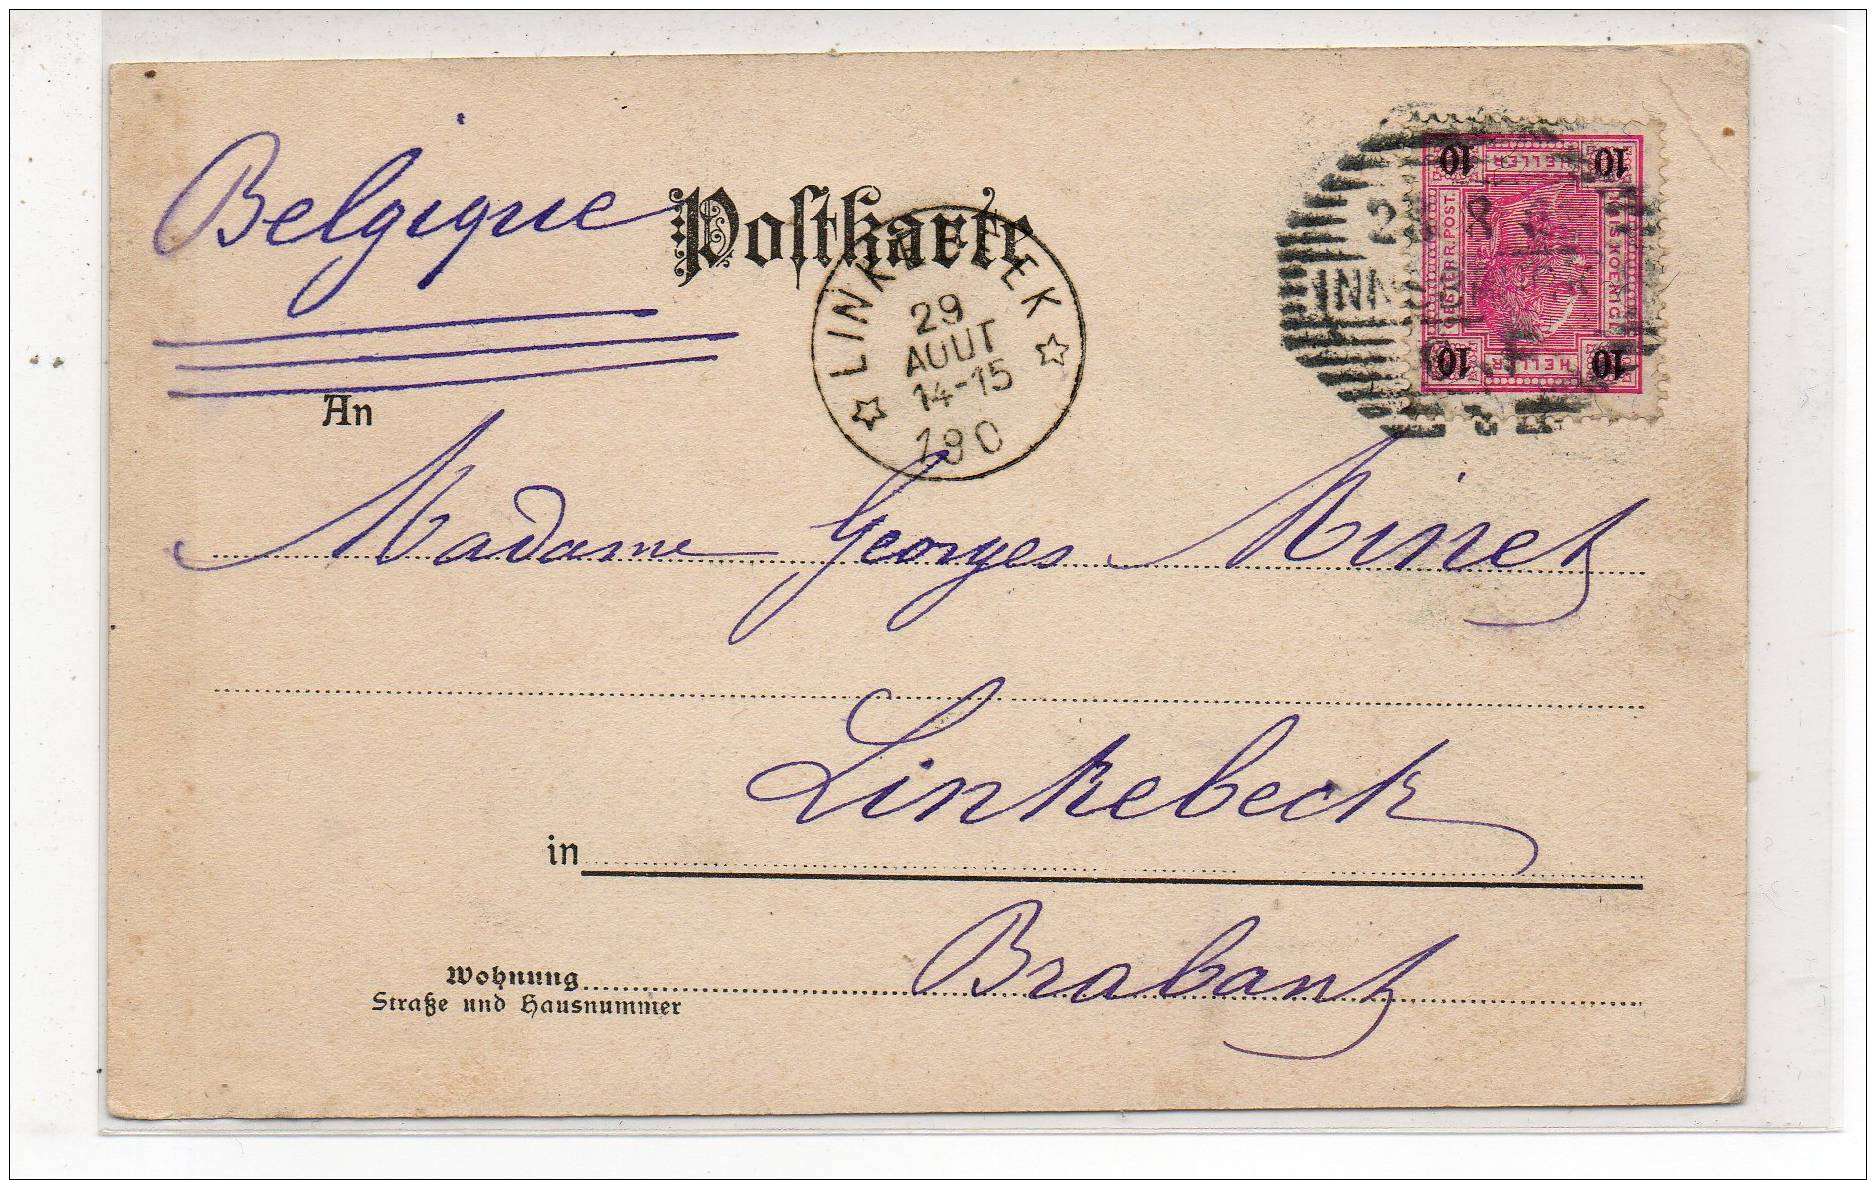 Belgique
Postkarte
LINKEBEEK
29
AOUT
14-15
190
10 HELLER 10
OESTERR. POST.
10 HELLER 10
An
Madame Georges Minet
Linkebeek
in
Brabant
Wohnung
Straße und Hausnummer